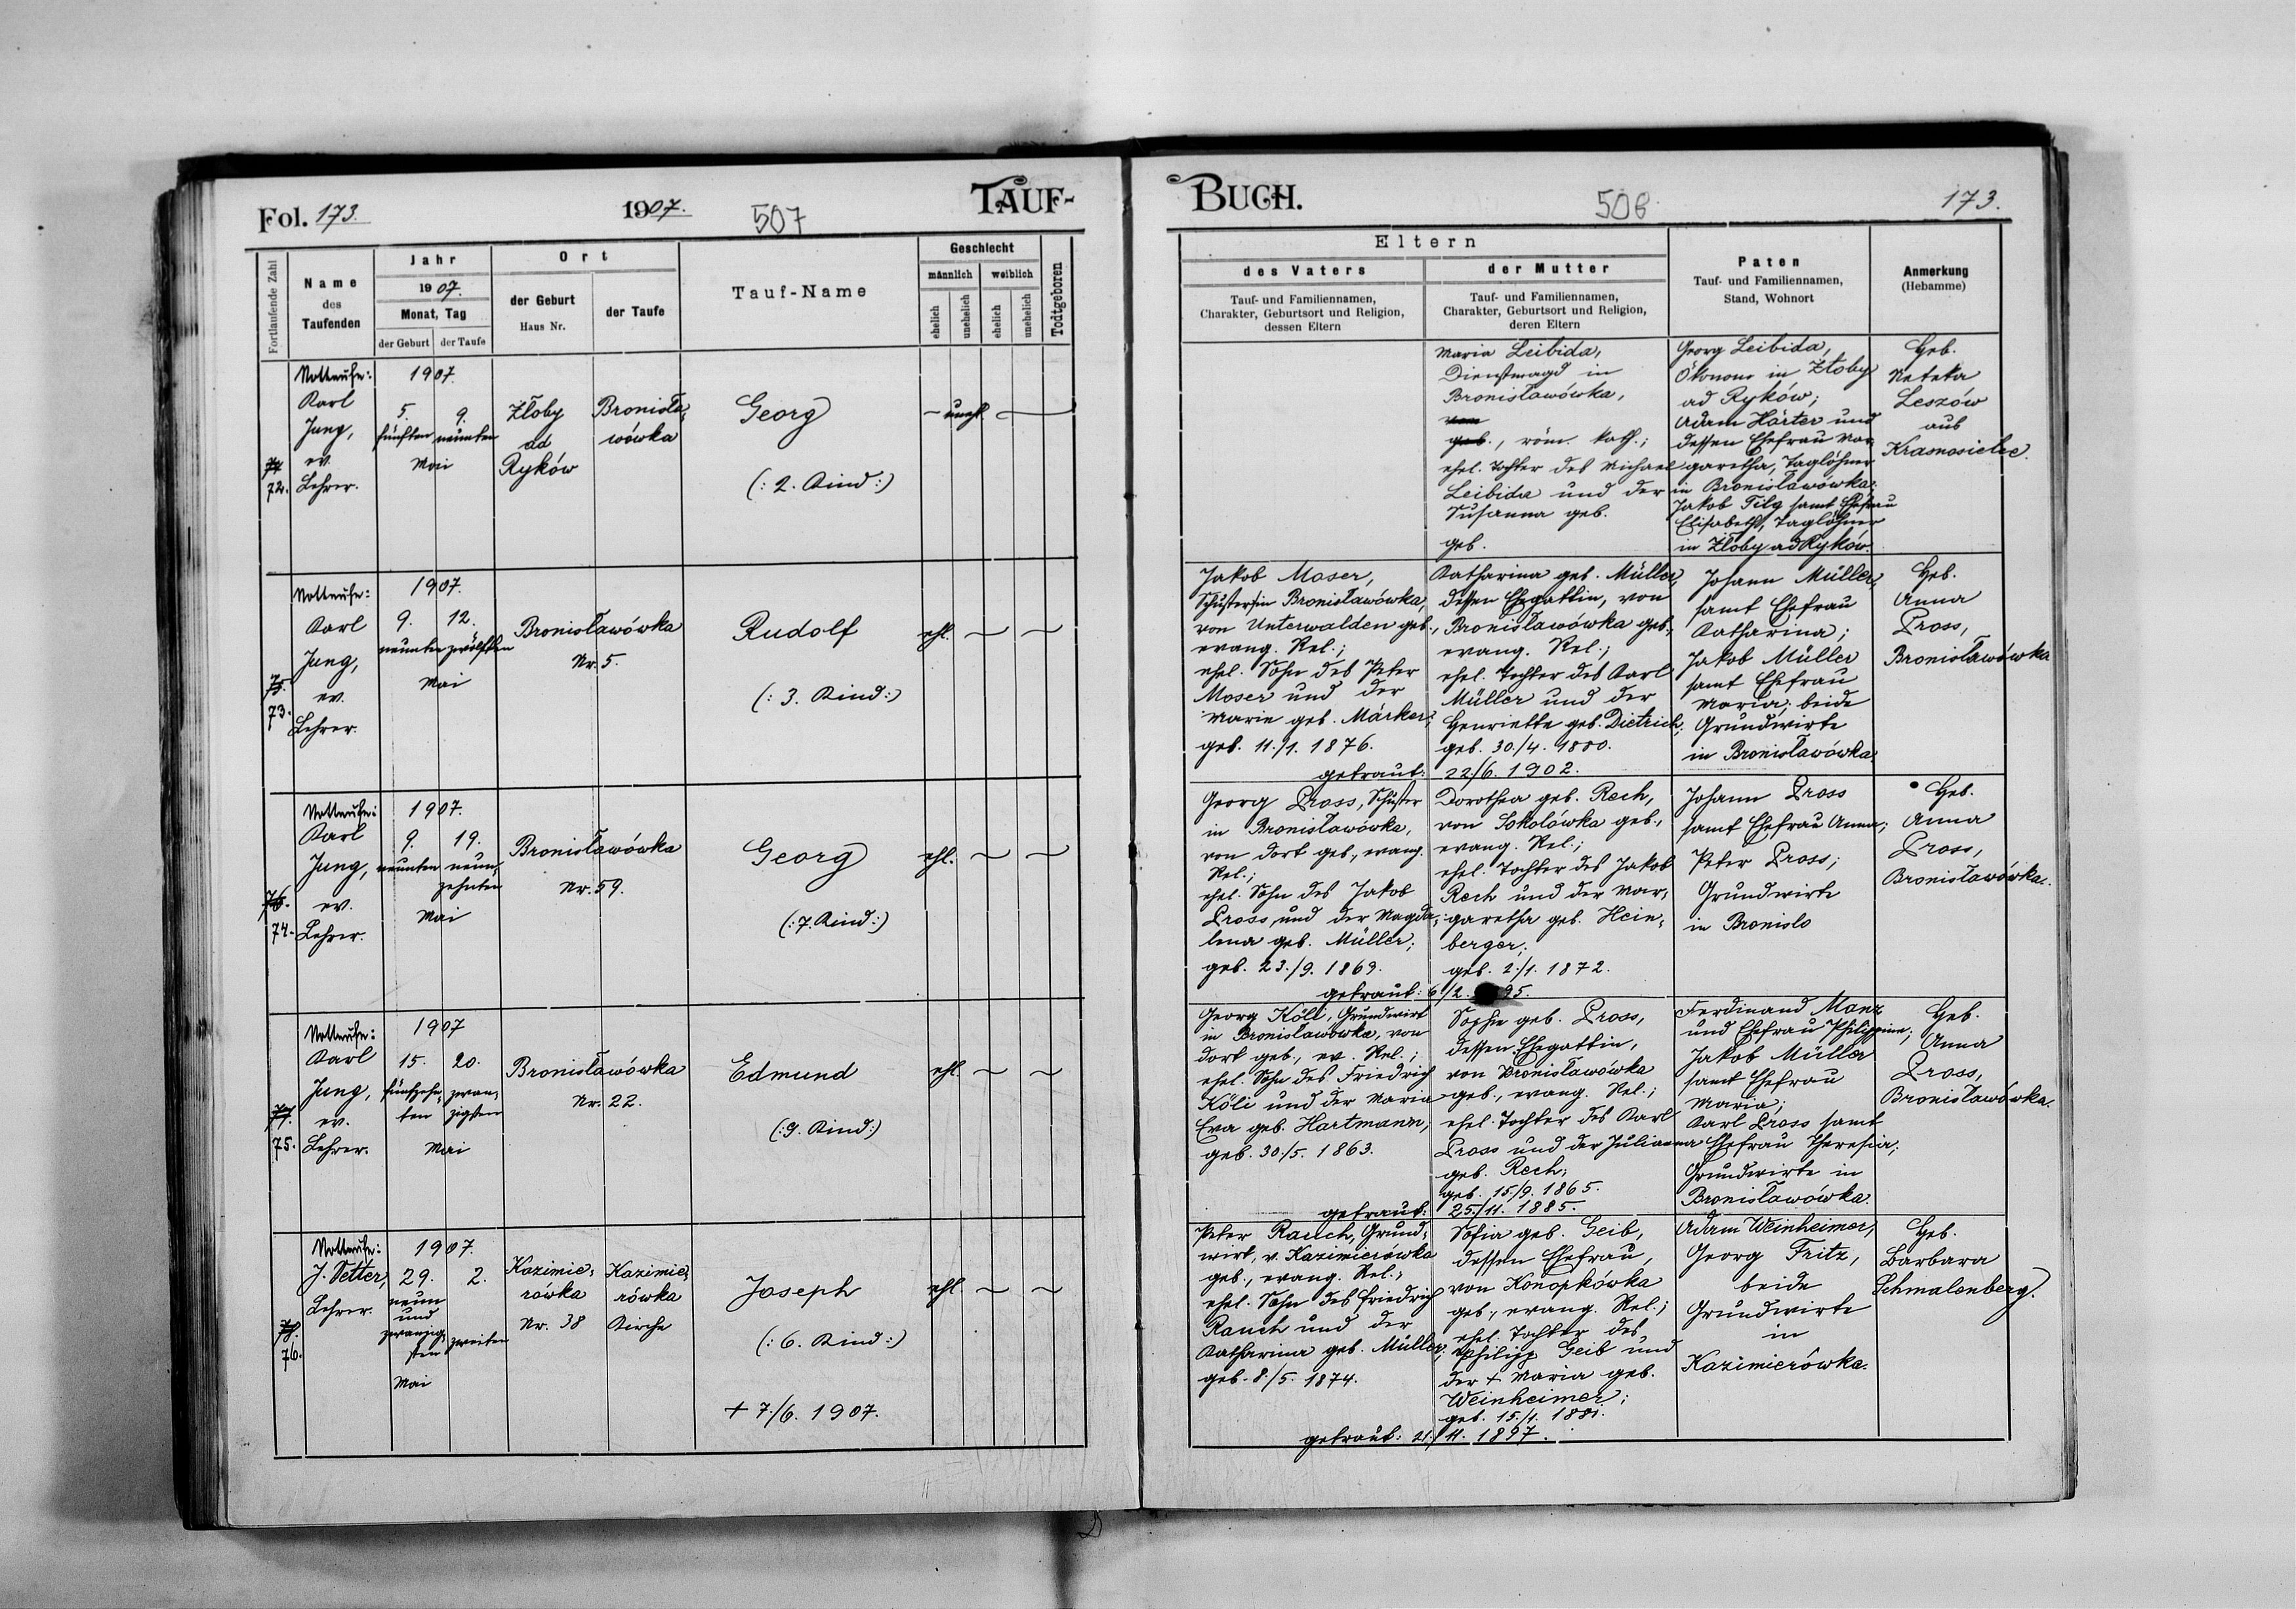 Fol. 173.
1907.
507
TAUF-
Fortlaufende Zahl
Name
des
Taufenden
Jahr
1907.
Monat, Tag
der Geburt
der Taufe
Ort
der Geburt
Haus Nr.
der Taufe
Tauf-Name
Geschlecht
männlich
weiblich
ehelich
unehelich
ehelich
unehelich
Todtgeboren
74.
72.
Nottaufe:
Karl
Jung,
ev.
Lehrer.
1907.
5.
fünften
9.
neunten
Mai
Złoby
ad
Ryków
Bronisła-
wówka
Georg
(: 2. Kind :)
unehl.
75.
73.
Nottaufe:
Karl
Jung,
ev.
Lehrer.
1907.
9. 12.
neunten zwölften
Mai
Bronisławówka
Nr. 5.
Rudolf
(: 3. Kind :)
ehl.
76.
74.
Nottaufe:
Karl
Jung,
ev.
Lehrer.
1907.
9. 19.
neunten neun-
zehnten
Mai
Bronisławówka
Nr. 59.
Georg
(: 7. Kind :)
ehl.
77.
75.
Nottaufe:
Karl
Jung,
ev.
Lehrer.
1907
15. 20.
fünfzehn- zwan-
ten zigsten
Mai
Bronisławówka
Nr. 22.
Edmund
(: 9. Kind :)
ehl.
78.
76.
Nottaufe:
J. Vetter,
Lehrer.
1907.
29. 2.
neun
und
zwanzig-
sten
zweiten
Mai
Kazimie-
rówka
Nr. 38
Kazimie-
rówka
Kirche
Joseph
(: 6. Kind :)
+ 7./6. 1907.
ehl.
BUCH.
508
173.
Eltern
des Vaters
Tauf- und Familiennamen,
Charakter, Geburtsort und Religion,
dessen Eltern
der Mutter
Tauf- und Familiennamen,
Charakter, Geburtsort und Religion,
deren Eltern
Paten
Tauf- und Familiennamen,
Stand, Wohnort
Anmerkung
(Hebamme)
Maria Leibida,
Dienstmagd in
Bronisławówka,
von
geb., röm. kath.;
ehel. Tochter des Michael
Leibida und der
Susanna geb.
geb.
Georg Leibida,
Ökonom in Złoby
ad Ryków;
Adam Härter und
dessen Ehefrau Mar-
garetha, Taglöhner
in Bronisławówka;
Jakob Filg samt Ehefrau
Elisabeth, Taglöhner
in Złoby ad Ryków.
Heb.
Neteka
Leszów
aus
Krasnosielce.
Jakob Moser,
Schuster in Bronisławówka,
von Unterwalden geb.,
evang. Rel.;
ehel. Sohn des Peter
Moser und der
Marie geb. Märker;
geb. 11./1. 1876.
Katharina geb. Müller,
dessen Ehegattin, von
Bronisławówka geb.,
evang. Rel.;
ehel. Tochter des Karl
Müller und der
Henriette geb. Dietrich;
geb. 30./4. 1880.
getraut: 22./6. 1902.
Johann Müller,
samt Ehefrau
Katharina;
Jakob Müller
samt Ehefrau
Maria; beide
Grundwirte
in Bronisławówka.
Heb.
Anna
Pross,
Bronisławówka
Georg Pross, Schuster
in Bronisławówka,
von dort geb., evang.
Rel.;
ehel. Sohn des Jakob
Pross und der Magda-
lena geb. Müller;
geb. 23./9. 1869.
Dorothea geb. Rech,
von Sokolówka geb.,
evang. Rel.;
ehel. Tochter des Jakob
Rech und der Mar-
garetha geb. Hein-
berger;
geb. 2./1. 1872.
getraut: 6./2. 95.
Johann Pross
samt Ehefrau Anna;
Peter Pross;
Grundwirte
in Bronislo
Heb.
Anna
Pross,
Bronisławówka.
Georg Köli, Grundwirt
in Bronisławówka, von
dort geb., ev. Rel.;
ehel. Sohn des Friedrich
Köli und der Maria
Eva geb. Hartmann,
geb. 30./5. 1863.
Sophie geb. Pross,
dessen Ehegattin,
von Bronisławówka
geb., evang. Rel.;
ehel. Tochter des Karl
Pross und der Julianna
geb. Rech;
geb. 15./9. 1865.
getraut: 25./11. 1885.
Ferdinand Manz
und Ehefrau Philippine;
Jakob Müller
samt Ehefrau
Maria;
Karl Pross samt
Ehefrau Theresia;
Grundwirte in
Bronisławówka.
Heb.
Anna
Pross,
Bronisławówka.
Peter Rauch, Grund-
wirt, v. Kazimierówka
geb., evang. Rel.;
ehel. Sohn des Friedrich
Rauch und der
Katharina geb. Müller;
geb. 8./5. 1874.
Sofia geb. Geib,
dessen Ehefrau,
von Konopkówka
geb., evang. Rel.;
ehel. Tochter des
Philipp Geib und
der + Maria geb.
Weinheimer;
geb. 15./1. 1881.
getraut: 21./11. 1897.
Adam Weinheimer,
Georg Fritz,
beide
Grundwirte
in
Kazimierówka.
Heb.
Barbara
Schmalenberg.